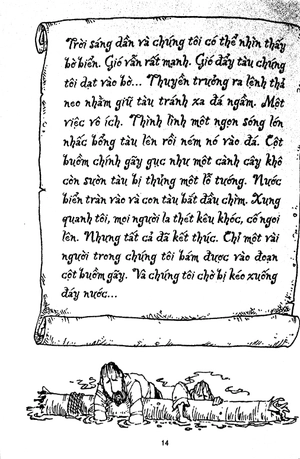 Trời sáng dần và chúng tôi có thể nhìn thấy
bờ biển. Gió vẫn rất mạnh. Gió đẩy tàu chúng
tôi dạt vào bờ... Thuyền trưởng ra lệnh thả
neo nhằm giữ tàu tránh xa đá ngầm. Một
việc vô ích. Thình lình một ngọn sóng lớn
nhấc bổng tàu lên rồi ném nó vào đá. Cột
buồm chính gãy gục như một cành cây khô
còn sườn tàu bị thủng một lỗ tướng. Nước
biển tràn vào và con tàu bắt đầu chìm. Xung
quanh tôi, mọi người la thét kêu khóc, cố ngoi
lên. Nhưng tất cả đã kết thúc. Chỉ một vài
người trong chúng tôi bám được vào đoạn
cột buồm gãy. Và chúng tôi chờ bị kéo xuống
đáy nước...
14